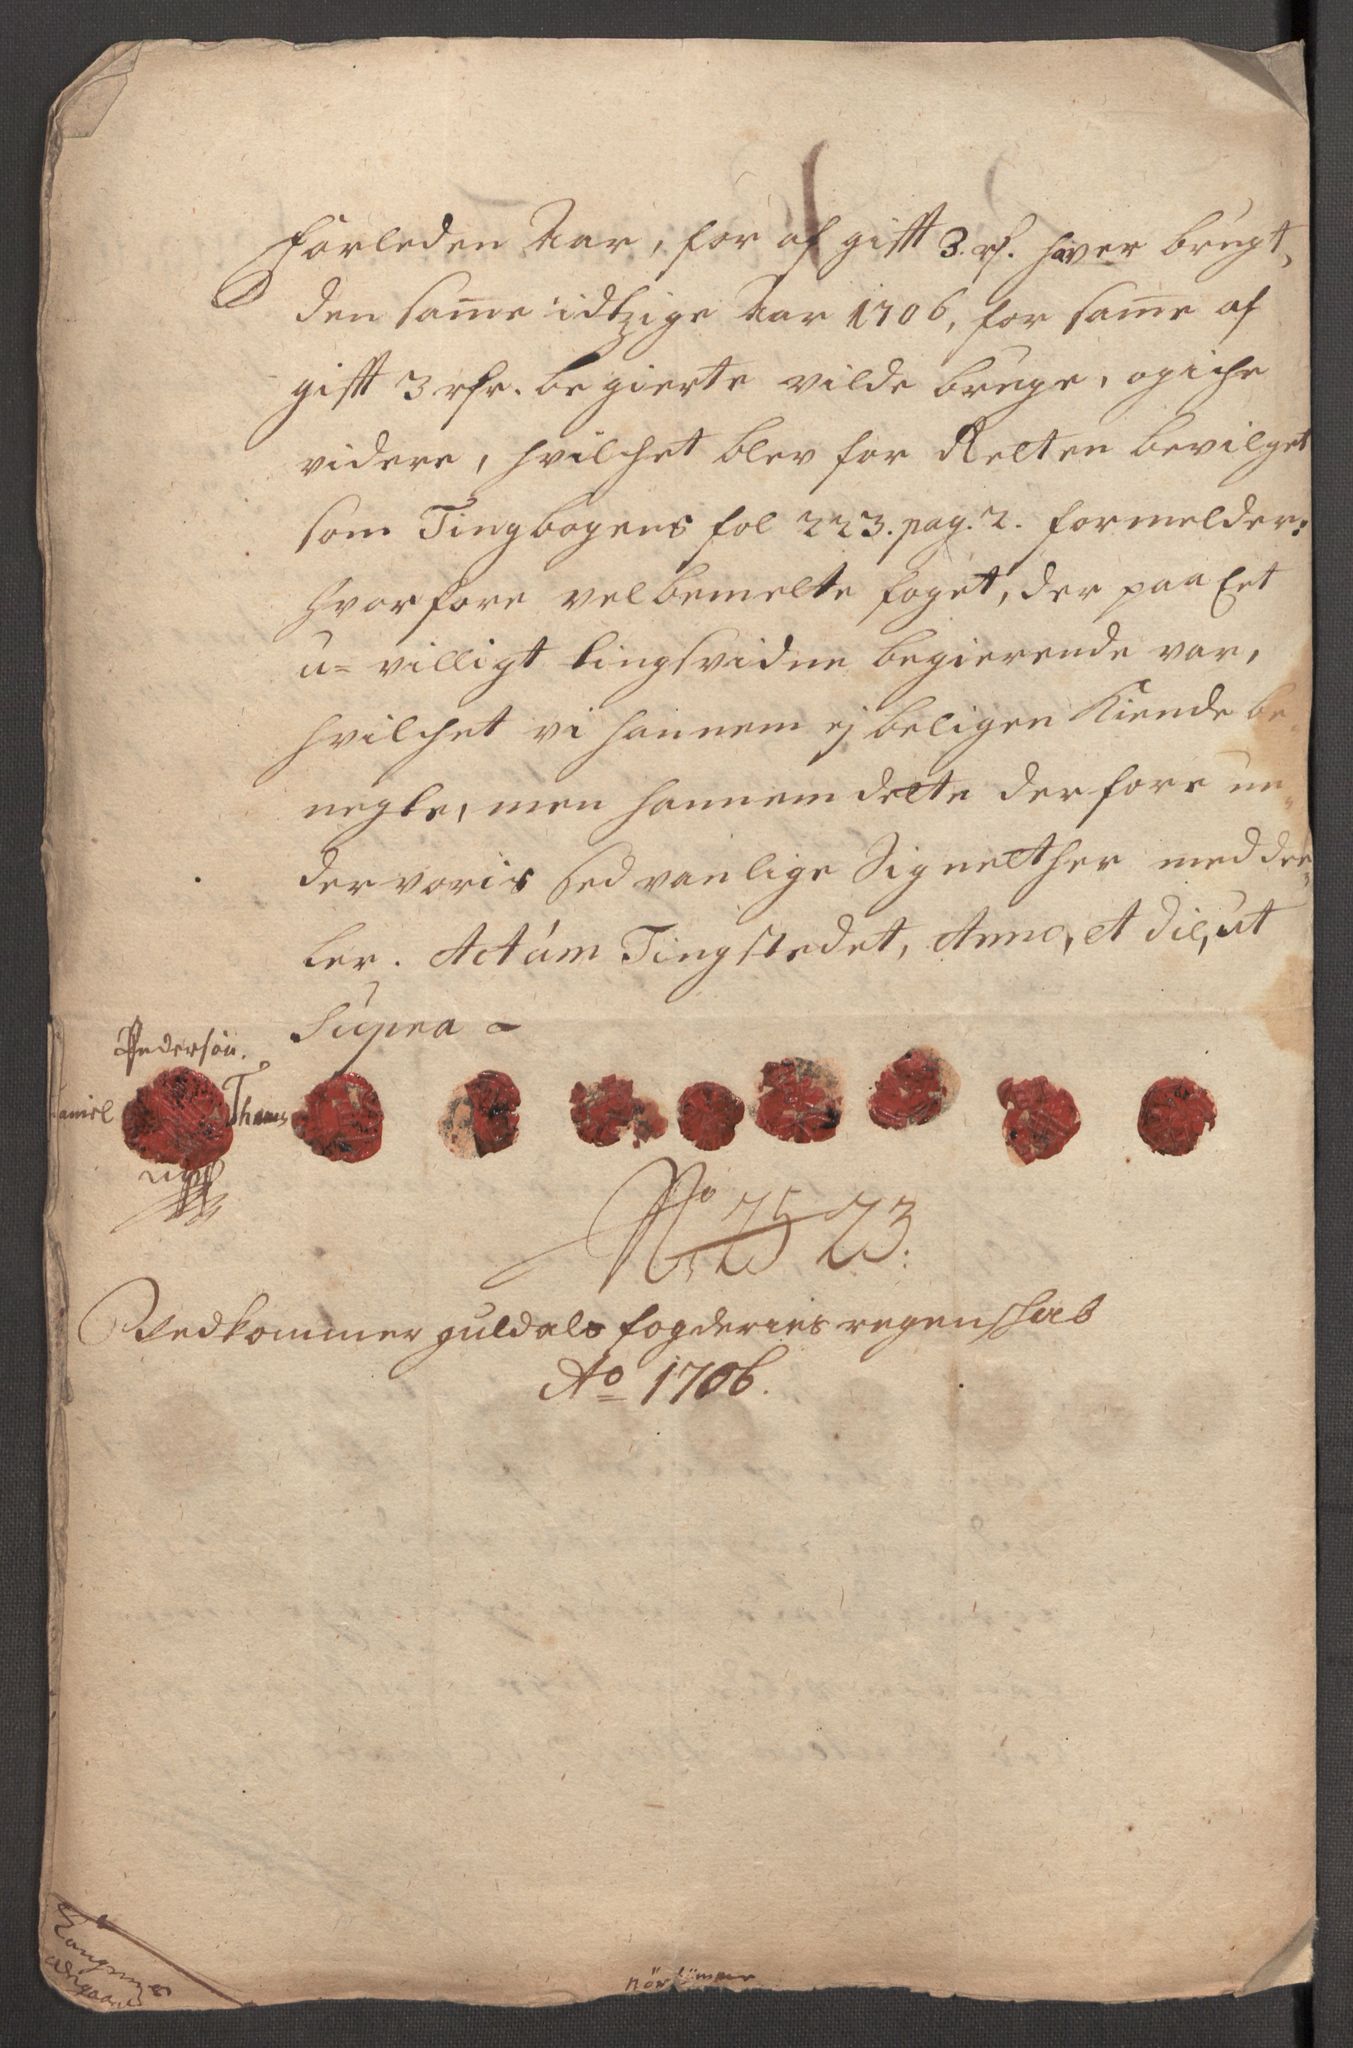 forleden Aar, for afgifft 3 rf. hver brugt,
den same idtzige Aar 1706, for same af
gifft 3 rfr. begierte vilde bruge, og iche
videre, hvilchet blev for Retten bevilget
som Tingbogens fol 223. pag. 2. formelder:
hvorfore velbemelte foget, der paa Eet
u-villigt tingsvidne begierende var,
hvilchet vi hannem ej beligen Kiende be-
negte, men hannem dette derfore un-
der voris sedvanlige Signetther meddee-
ler. Actum Tingstedet, Anno, et die, ut
Supra
Pedersøn.
Daniel Thams
No 25 25 23:
Vedkommer guldals fogderies regenskab
Ao 1706.